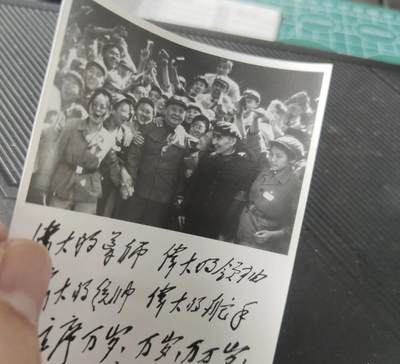 偉大的导师 偉大的領袖
偉大的统帅 偉大的舵手
主席万岁、万岁、万万岁